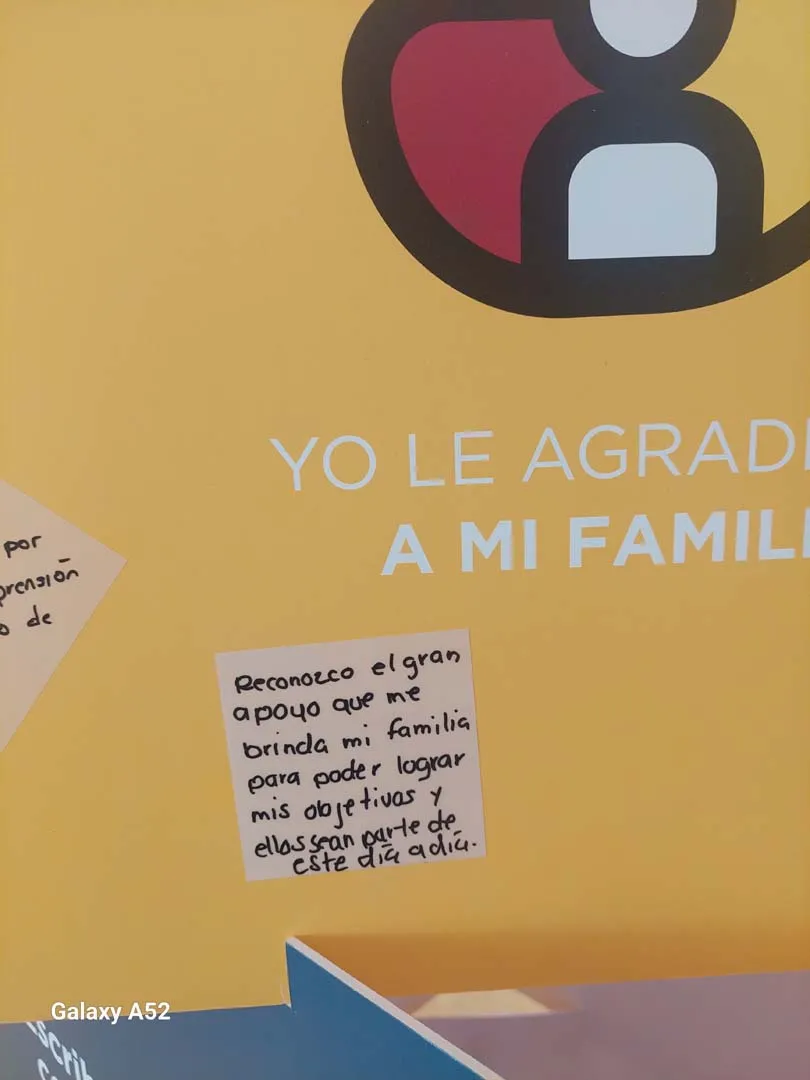 YO LE AGRAD
A MI FAMILI
por
prensión
o de
Reconozco el gran
apoyo que me
brinda mi familia
para poder lograr
mis objetivos y
ellos sean parte de
este día a día.
Galaxy A52
scrib